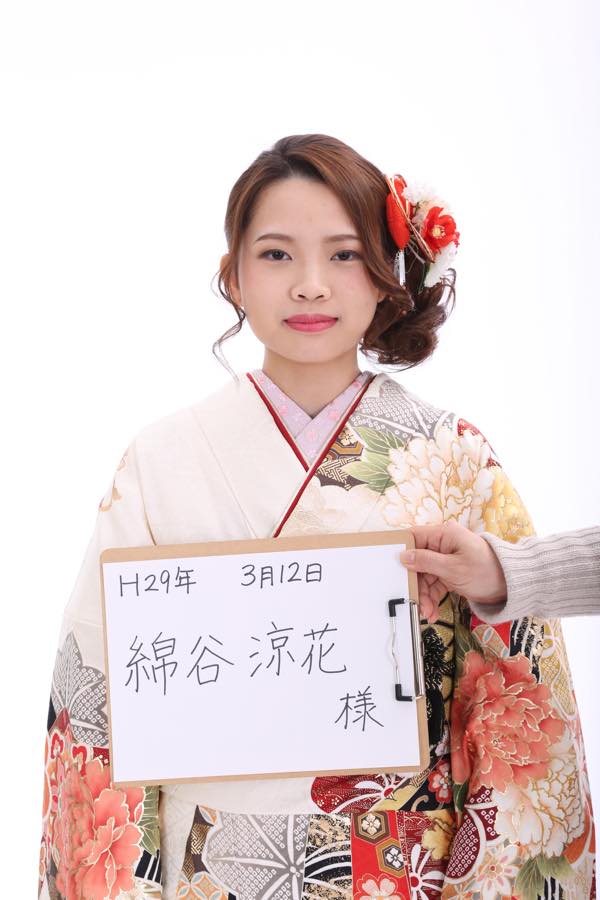 H29年 3月12日
綿谷 涼花
様